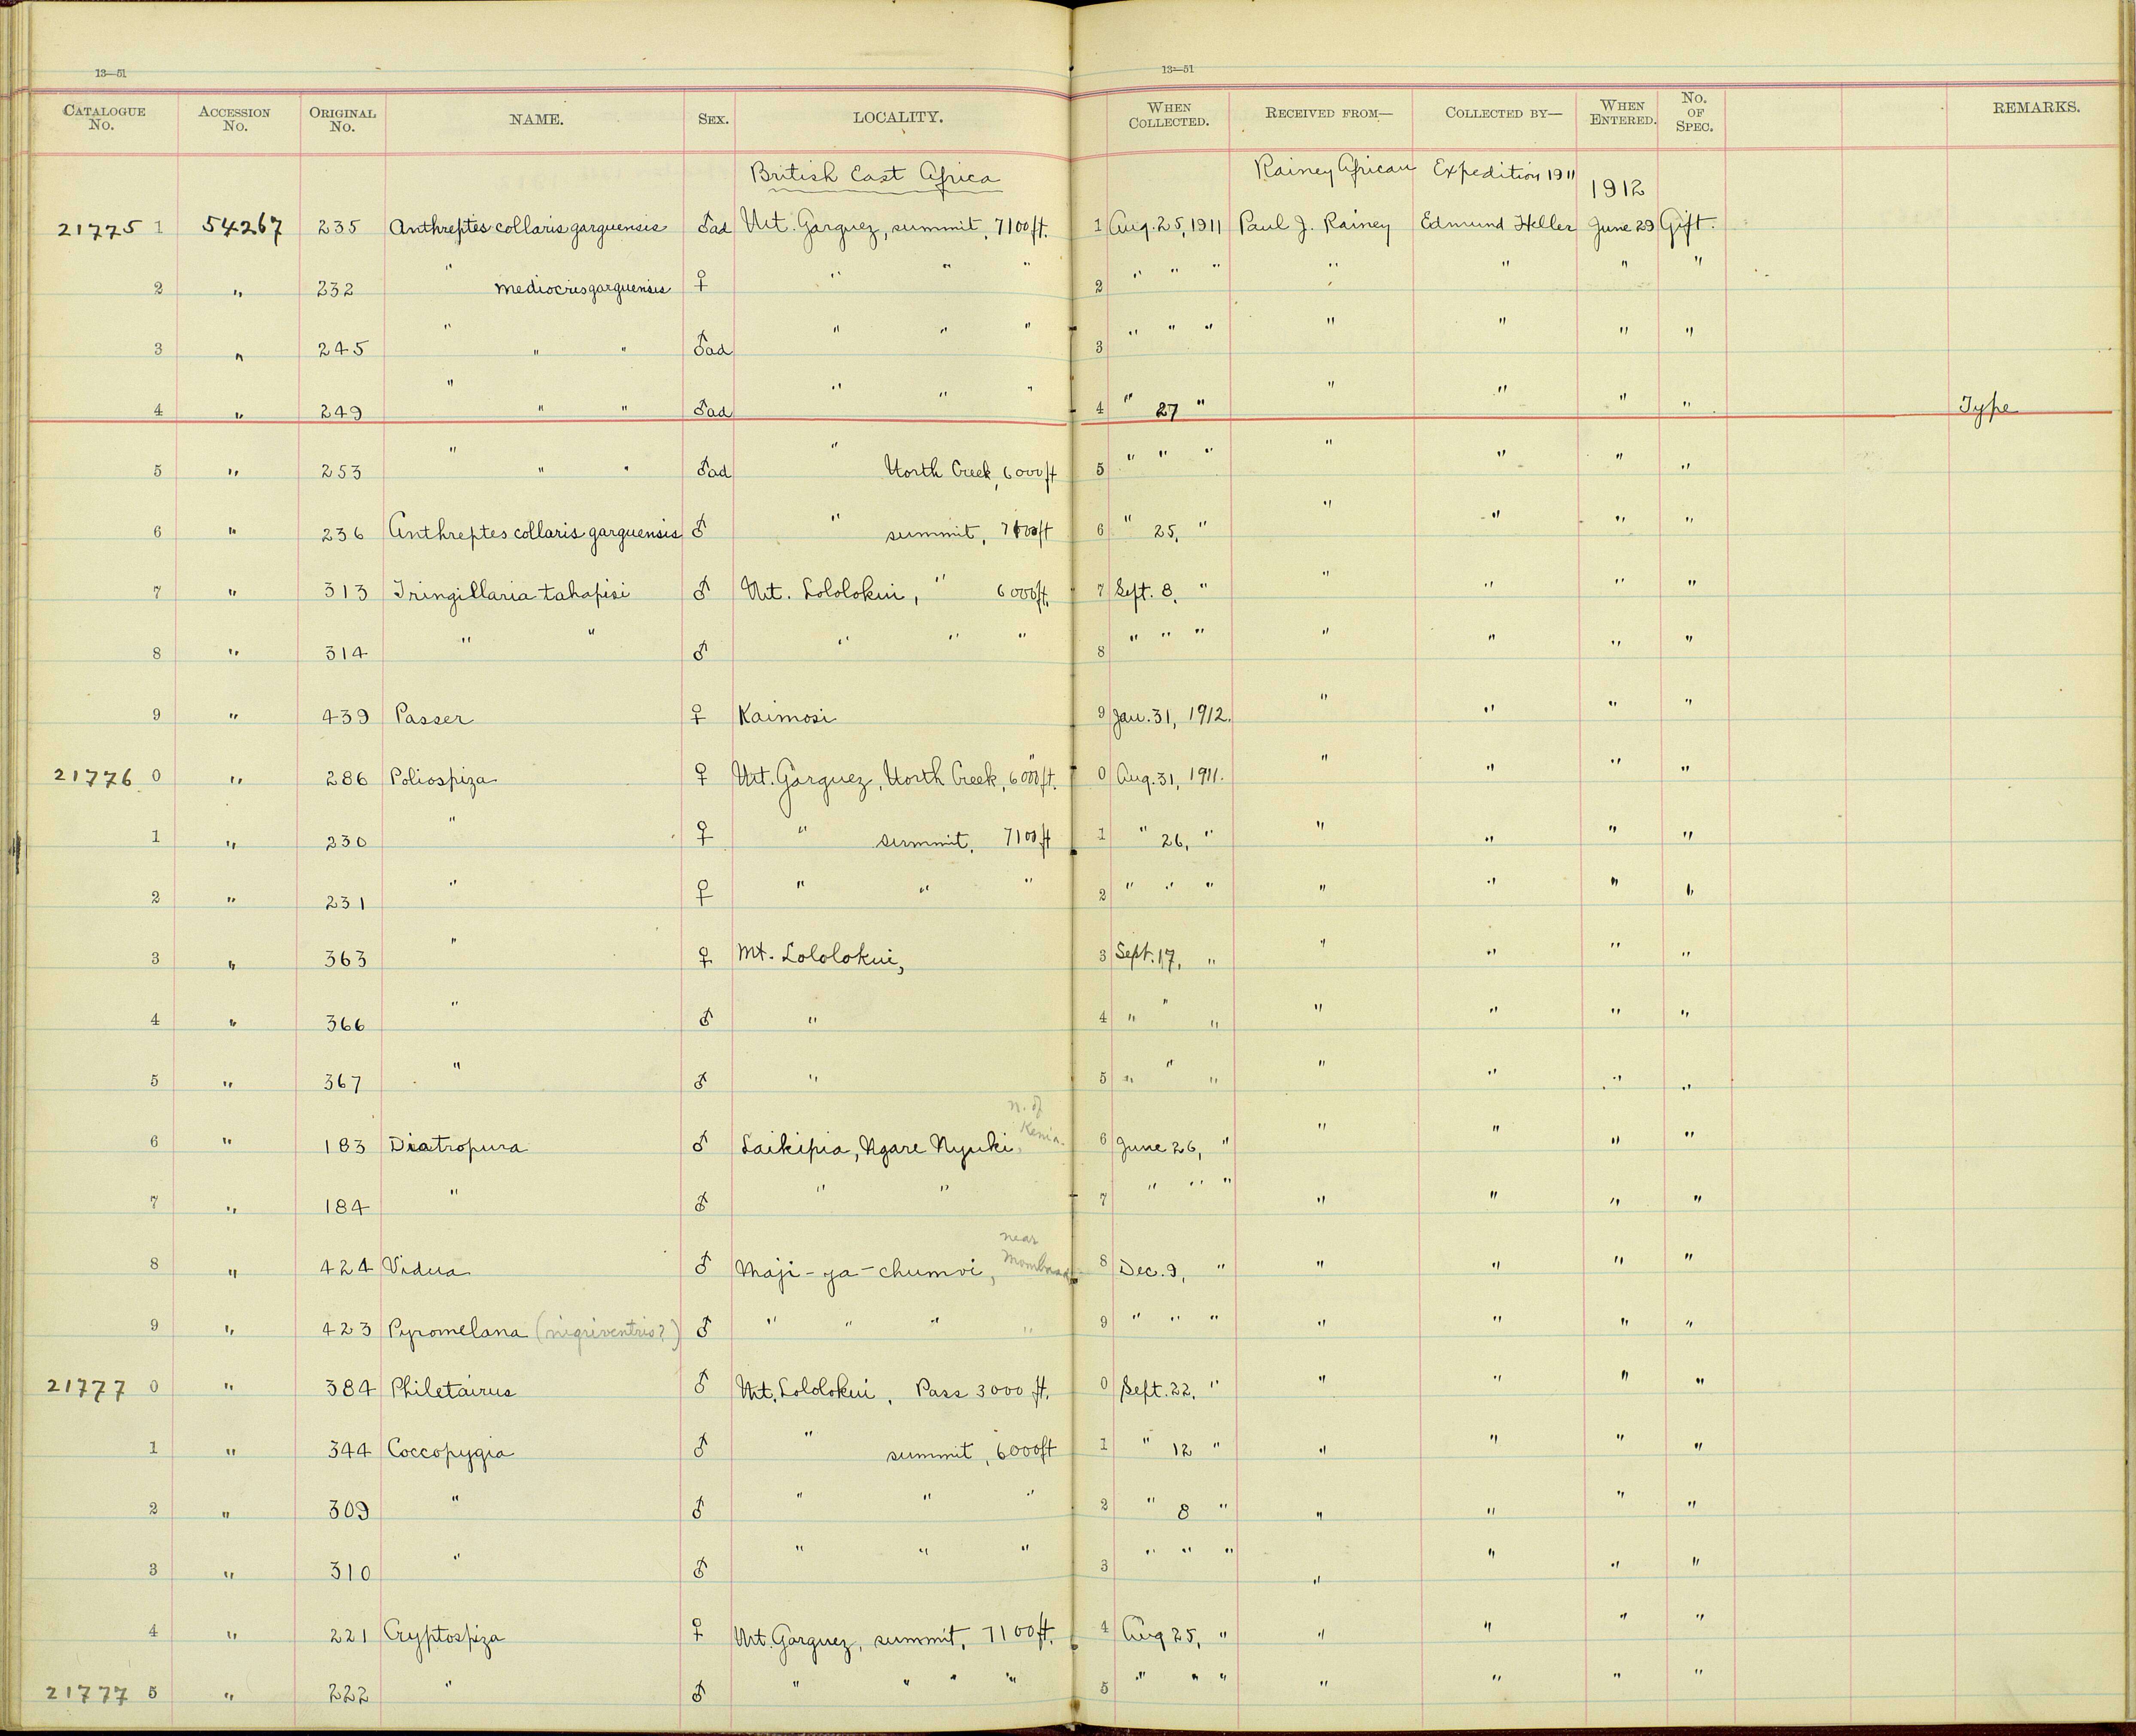 13—51 13—51
CATALOGUE No. ACCESSION No. ORIGINAL No. NAME. SEX. LOCALITY. WHEN COLLECTED. RECEIVED FROM— COLLECTED BY— WHEN ENTERED. No. OF SPEC. REMARKS.
British East Africa Rainey African Expedition 1911 1912
21775 1 54267 235 Anthreptes collaris garguensis ♂ad Mt. Garguez, summit, 7100 ft. 1 Aug. 25, 1911 Paul J. Rainey Edmund Heller June 29 Gift.
2 " 232 " mediocris garguensis ♀ " " " 2 " " " " " " "
3 " 245 " " " ♂ad " " " 3 " " " " " " "
4 " 249 " " " ♂ad " " " 4 " 27 " " " " " Type
5 " 253 " " " ♂ad " North Creek, 6000 ft 5 " " " " " " "
6 " 236 Anthreptes collaris garguensis ♂ " summit, 7100 ft 6 " 25, " " " " "
7 " 313 Fringillaria tahapisi ♂ Mt. Lololokui, " 6000 ft. 7 Sept. 8, " " " " "
8 " 314 " " ♂ " " " 8 " " " " " " "
9 " 439 Passer ♀ Kaimosi 9 Jan. 31, 1912. " " " "
21776 0 " 286 Poliospiza ♀ Mt. Garguez, North Creek, 6000 ft. 0 Aug. 31, 1911. " " " "
1 " 230 " ♀ " summit, 7100 ft 1 " 26, " " " " "
2 " 231 " ♀ " " " 2 " " " " " " "
3 " 363 " ♀ Mt. Lololokui, 3 Sept. 17, " " " " "
4 " 366 " ♂ " 4 " " " " " " "
5 " 367 " ♂ " 5 " " " " " " "
n. of
6 " 183 Diatropura ♂ Laikipia, Ngare Nyuki, Kenia. 6 June 26, " " " " "
7 " 184 " ♂ " " 7 " " " " " " "
near
8 " 424 Vidua ♂ Maji-ya-chumvi, Mombasa 8 Dec. 9, " " " " "
9 " 423 Pyromelana (nigriventris?) ♂ " " " " 9 " " " " " " "
21777 0 " 384 Philetairus ♂ Mt. Lololokui, Pass 3000 ft. 0 Sept. 22, " " " " "
1 " 344 Coccopygia ♂ " summit, 6000 ft 1 " 12 " " " " "
2 " 309 " ♂ " " " 2 " 8 " " " " "
3 " 310 " ♂ " " " 3 " " " " " " "
4 " 221 Cryptospiza ♀ Mt. Garguez, summit, 7100 ft. 4 Aug 25, " " " " "
21777 5 " 222 " ♂ " " " " 5 " " " " " " "